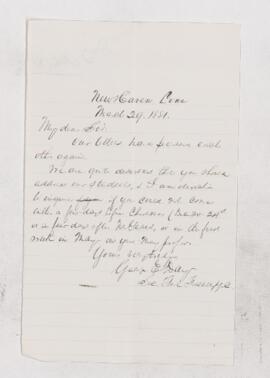 New Haven, Conn
March 29, 1881.
My dear Sir.
Our letters have passed each
other again.
We are quite desirous that you should
address our students, & I am
to inquire if you could not come
within a few days after
or a few days after, or in the first
week in May, as you may prefer.
Yours very truly
Geo. E. Day